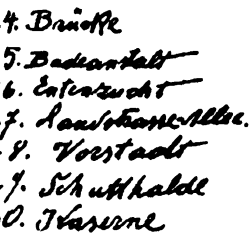 4. Brücke
5. Badeanstalt
6. Entenzucht
7. Landstrasse-Allee.
8. Vorstadt
9. Schutthalde
0. Kaserne